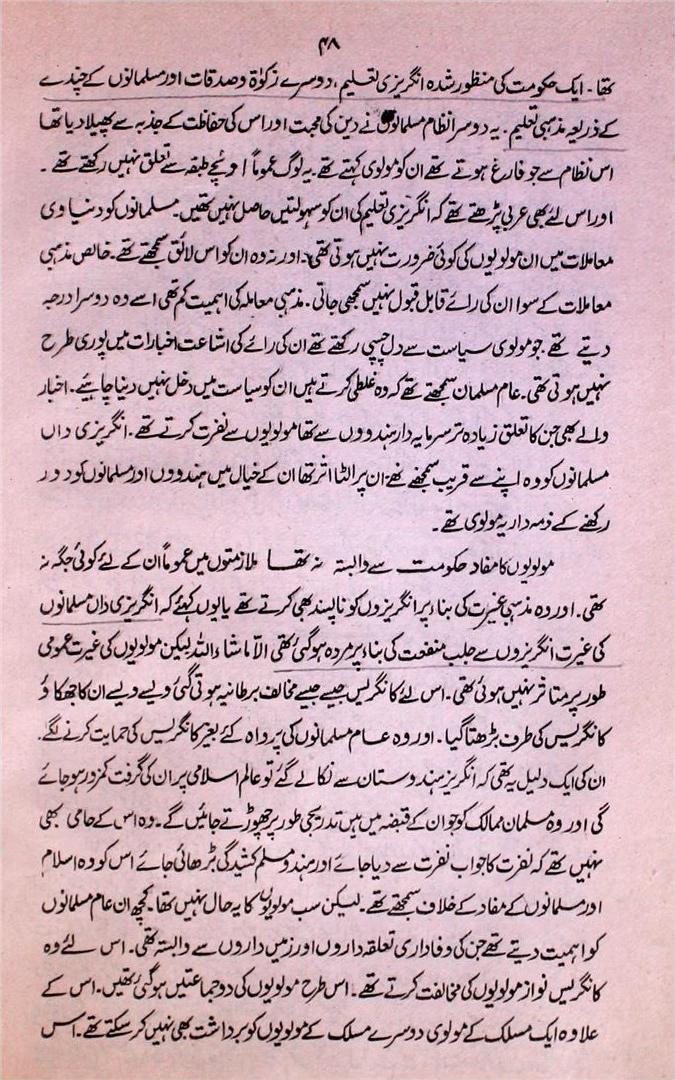 ۴۸
تھا۔ ایک حکومت کی منظور شدہ انگریزی تعلیم، دوسرے زکوٰۃ و صدقات اور مسلمانوں کے چندے
کے ذریعہ مذہبی تعلیم۔ یہ دوسرا نظام مسلمانوں نے دین کی محبت اور اس کی حفاظت کے جذبہ سے پھیلا دیا تھا
اس نظام سے جو فارغ ہوتے تھے ان کو مولوی کہتے تھے۔ یہ لوگ عموماً اونچے طبقہ سے تعلق نہیں رکھتے تھے۔
اور اس لئے بھی عربی پڑھتے تھے کہ انگریزی تعلیم کی ان کو سہولتیں حاصل نہیں تھیں۔ مسلمانوں کو دنیا وی
معاملات میں ان مولویوں کی کوئی ضرورت نہیں ہوتی تھی۔ اور نہ وہ ان کو اس لائق سمجھتے تھے۔ خالص مذہبی
معاملات کے سوا ان کی رائے قابل قبول نہیں سمجھی جاتی۔ مذہبی معاملہ کی اہمیت کم تھی اسے وہ دوسرا درجہ
دیتے تھے جو مولوی سیاست سے دل چسپی رکھتے تھے ان کی رائے کی اشاعت اخبارات میں پوری طرح
نہیں ہوتی تھی۔ عام مسلمان سمجھتے تھے کہ وہ غلطی کرتے ہیں ان کو سیاست میں دخل نہیں دینا چاہیئے۔ اخبار
والے بھی جن کا تعلق زیادہ تر سرمایہ دار ہندووں سے تھا مولویوں سے نفرت کرتے تھے۔ انگریزی داں
مسلمانوں کو وہ اپنے سے قریب سمجھتے تھے۔ ان پر الٹا اثر تھا ان کے خیال میں ہندووں اور مسلمانوں کو دور
رکھنے کے ذمہ دار یہ مولوی تھے۔
مولویوں کا مفاد حکومت سے وابستہ نہ تھا ملازمتوں میں عموماً ان کے لئے کوئی جگہ نہ
تھی۔ اور وہ مذہبی غیرت کی بناء پر انگریزوں کو ناپسند بھی کرتے تھے یا یوں کہئے کہ انگریزی داں مسلمانوں
کی غیرت انگریزوں سے جلب منفعت کی بناء پر مردہ ہوگئی تھی الا ماشاء اللہ لیکن مولویوں کی غیرت عمومی
طور پر متاثر نہیں ہوئی تھی۔ اس لئے کانگریس جیسے جیسے مخالف برطانیہ ہوتی گئی ویسے ویسے ان کا جھکاؤ
کانگریس کی طرف بڑھتا گیا۔ اور وہ عام مسلمانوں کی پرواہ کئے بغیر کانگریس کی حمایت کرنے لگے۔
ان کی ایک دلیل یہ تھی کہ انگریز ہندوستان سے نکالے گئے تو عالم اسلامی پر ان کی گرفت کمزور ہو جائے
گی اور وہ مسلمان ممالک کو جو ان کے قبضہ میں ہیں تدریجی طور پر چھوڑتے جائیں گے۔ وہ اس کے حامی بھی
نہیں تھے کہ نفرت کا جواب نفرت سے دیا جائے اور ہندو مسلم کشیدگی بڑھائی جائے اس کو وہ اسلام
اور مسلمانوں کے مفاد کے خلاف سمجھتے تھے۔ لیکن سب مولویوں کا یہ حال نہیں تھا۔ کچھ ان عام مسلمانوں
کو اہمیت دیتے تھے جن کی وفاداری تعلقہ داروں اور زمیں داروں سے وابستہ تھی۔ اس لئے وہ
کانگریس نواز مولویوں کی مخالفت کرتے تھے۔ اس طرح مولویوں کی دو جماعتیں ہوگئی تھیں۔ اس کے
علاوہ ایک مسلک کے مولوی دوسرے مسلک کے مولویوں کو برداشت بھی نہیں کر سکتے تھے۔ اس